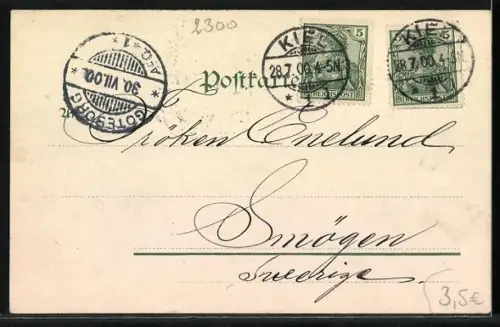 2300
KIEL
28.7.00.4-5N.
* 1
5
REICHSPOST
KIEL
28.7.00.4-5N.
1
REICHSPOST
* 1 * AFG.
30.VII.00
GÖTEBORG
Postkarte
Fröken Enelund
Smögen
Sverige
3,5€